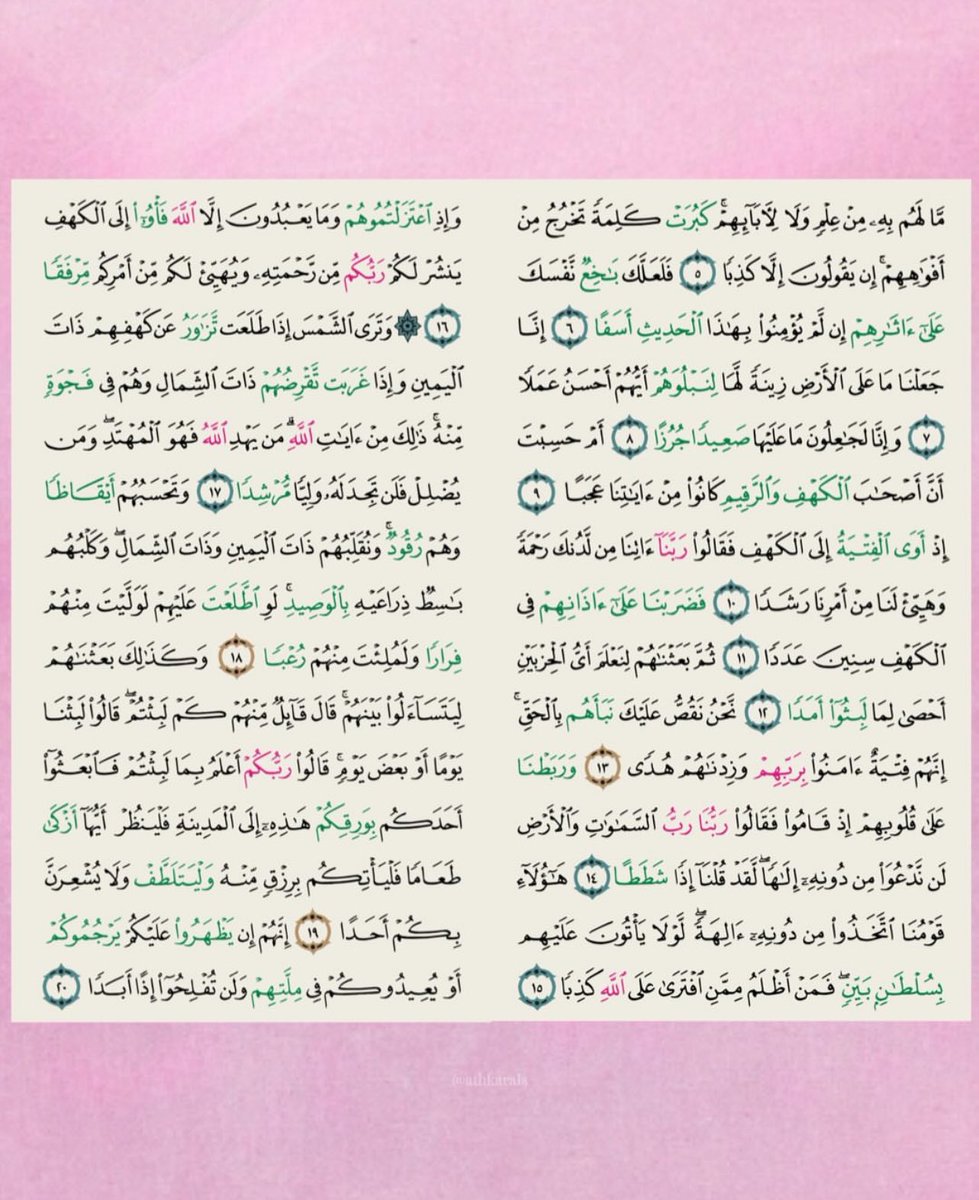 مَّا لَهُم بِهِۦ مِنْ عِلْمٍ وَلَا لِأَبَآئِهِمْ ۚ كَبُرَتْ كَلِمَةً تَخْرُجُ مِنْ
أَفْوَٰهِهِمْ ۚ إِن يَقُولُونَ إِلَّا كَذِبًا ٥ فَلَعَلَّكَ بَٰخِعٌ نَّفْسَكَ
عَلَىٰٓ ءَاثَٰرِهِمْ إِن لَّمْ يُؤْمِنُوا۟ بِهَٰذَا ٱلْحَدِيثِ أَسَفًا ٦ إِنَّا
جَعَلْنَا مَا عَلَى ٱلْأَرْضِ زِينَةً لَّهَا لِنَبْلُوَهُمْ أَيُّهُمْ أَحْسَنُ عَمَلًا
٧ وَإِنَّا لَجَٰعِلُونَ مَا عَلَيْهَا صَعِيدًا جُرُزًا ٨ أَمْ حَسِبْتَ
أَنَّ أَصْحَٰبَ ٱلْكَهْفِ وَٱلرَّقِيمِ كَانُوا۟ مِنْ ءَايَٰتِنَا عَجَبًا ٩
إِذْ أَوَى ٱلْفِتْيَةُ إِلَى ٱلْكَهْفِ فَقَالُوا۟ رَبَّنَآ ءَاتِنَا مِن لَّدُنكَ رَحْمَةً
وَهَيِّئْ لَنَا مِنْ أَمْرِنَا رَشَدًا ١٠ فَضَرَبْنَا عَلَىٰٓ ءَاذَانِهِمْ فِى
ٱلْكَهْفِ سِنِينَ عَدَدًا ١١ ثُمَّ بَعَثْنَٰهُمْ لِنَعْلَمَ أَىُّ ٱلْحِزْبَيْنِ
أَحْصَىٰ لِمَا لَبِثُوٓا۟ أَمَدًا ١٢ نَّحْنُ نَقُصُّ عَلَيْكَ نَبَأَهُم بِٱلْحَقِّ ۚ
إِنَّهُمْ فِتْيَةٌ ءَامَنُوا۟ بِرَبِّهِمْ وَزِدْنَٰهُمْ هُدًى ١٣ وَرَبَطْنَا
عَلَىٰ قُلُوبِهِمْ إِذْ قَامُوا۟ فَقَالُوا۟ رَبُّنَا رَبُّ ٱلسَّمَٰوَٰتِ وَٱلْأَرْضِ
لَن نَّدْعُوَا۟ مِن دُونِهِۦٓ إِلَٰهًا ۖ لَّقَدْ قُلْنَآ إِذًا شَطَطًا ١٤ هَٰٓؤُلَآءِ
قَوْمُنَا ٱتَّخَذُوا۟ مِن دُونِهِۦٓ ءَالِهَةً ۖ لَّوْلَا يَأْتُونَ عَلَيْهِم
بِسُلْطَٰنٍۭ بَيِّنٍ ۖ فَمَنْ أَظْلَمُ مِمَّنِ ٱفْتَرَىٰ عَلَى ٱللَّهِ كَذِبًا ١٥
وَإِذِ ٱعْتَزَلْتُمُوهُمْ وَمَا يَعْبُدُونَ إِلَّا ٱللَّهَ فَأْوُۥٓا۟ إِلَى ٱلْكَهْفِ
يَنشُرْ لَكُمْ رَبُّكُم مِّن رَّحْمَتِهِۦ وَيُهَيِّئْ لَكُم مِّنْ أَمْرِكُم مِّرْفَقًا
١٦ ۞ وَتَرَى ٱلشَّمْسَ إِذَا طَلَعَت تَّزَٰوَرُ عَن كَهْفِهِمْ ذَاتَ
ٱلْيَمِينِ وَإِذَا غَرَبَت تَّقْرِضُهُمْ ذَاتَ ٱلشِّمَالِ وَهُمْ فِى فَجْوَةٍ
مِّنْهُ ۚ ذَٰلِكَ مِنْ ءَايَٰتِ ٱللَّهِ ۗ مَن يَهْدِ ٱللَّهُ فَهُوَ ٱلْمُهْتَدِ ۖ وَمَن
يُضْلِلْ فَلَن تَجِدَ لَهُۥ وَلِيًّا مُّرْشِدًا ١٧ وَتَحْسَبُهُمْ أَيْقَاظًا
وَهُمْ رُقُودٌ ۚ وَنُقَلِّبُهُمْ ذَاتَ ٱلْيَمِينِ وَذَاتَ ٱلشِّمَالِ ۖ وَكَلْبُهُم
بَٰسِطٌ ذِرَاعَيْهِ بِٱلْوَصِيدِ ۚ لَوِ ٱطَّلَعْتَ عَلَيْهِمْ لَوَلَّيْتَ مِنْهُمْ
فِرَارًا وَلَمُلِئْتَ مِنْهُمْ رُعْبًا ١٨ وَكَذَٰلِكَ بَعَثْنَٰهُمْ
لِيَتَسَآءَلُوا۟ بَيْنَهُمْ ۚ قَالَ قَآئِلٌ مِّنْهُمْ كَمْ لَبِثْتُمْ ۖ قَالُوا۟ لَبِثْنَا
يَوْمًا أَوْ بَعْضَ يَوْمٍ ۚ قَالُوا۟ رَبُّكُمْ أَعْلَمُ بِمَا لَبِثْتُمْ فَٱبْعَثُوٓا۟
أَحَدَكُم بِوَرِقِكُمْ هَٰذِهِۦٓ إِلَى ٱلْمَدِينَةِ فَلْيَنظُرْ أَيُّهَآ أَزْكَىٰ
طَعَامًا فَلْيَأْتِكُم بِرِزْقٍ مِّنْهُ وَلْيَتَلَطَّفْ وَلَا يُشْعِرَنَّ
بِكُمْ أَحَدًا ١٩ إِنَّهُمْ إِن يَظْهَرُوا۟ عَلَيْكُمْ يَرْجُمُوكُمْ
أَوْ يُعِيدُوكُمْ فِى مِلَّتِهِمْ وَلَن تُفْلِحُوٓا۟ إِذًا أَبَدًا ٢٠